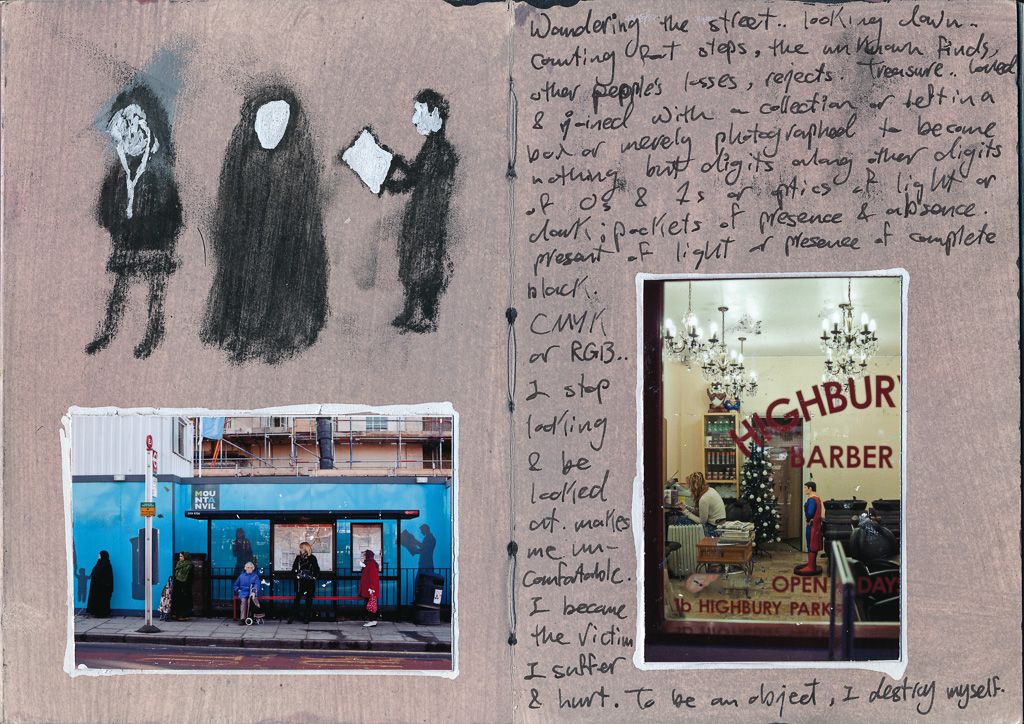 Wandering the street.. looking down..
counting foot steps, the unknown finds,
other people's losses, rejects. Treasure.. loved
& joined with a collection or left in a
box or merely photographed to become
nothing but digits along other digits
of 0s & 1s or optics of light or
dark; pockets of presence & absence.
present of light or presence of complete
black.
CMYK
or RGB..
I stop
looking
& be
looked
at. makes
me un-
comfortable.
I became
the victim
I suffer
& hurt. To be an object, I destroy myself.
MOU
NTA
NVIL
HIGHBURY
BARBER
OPEN DAY
1b HIGHBURY PARK